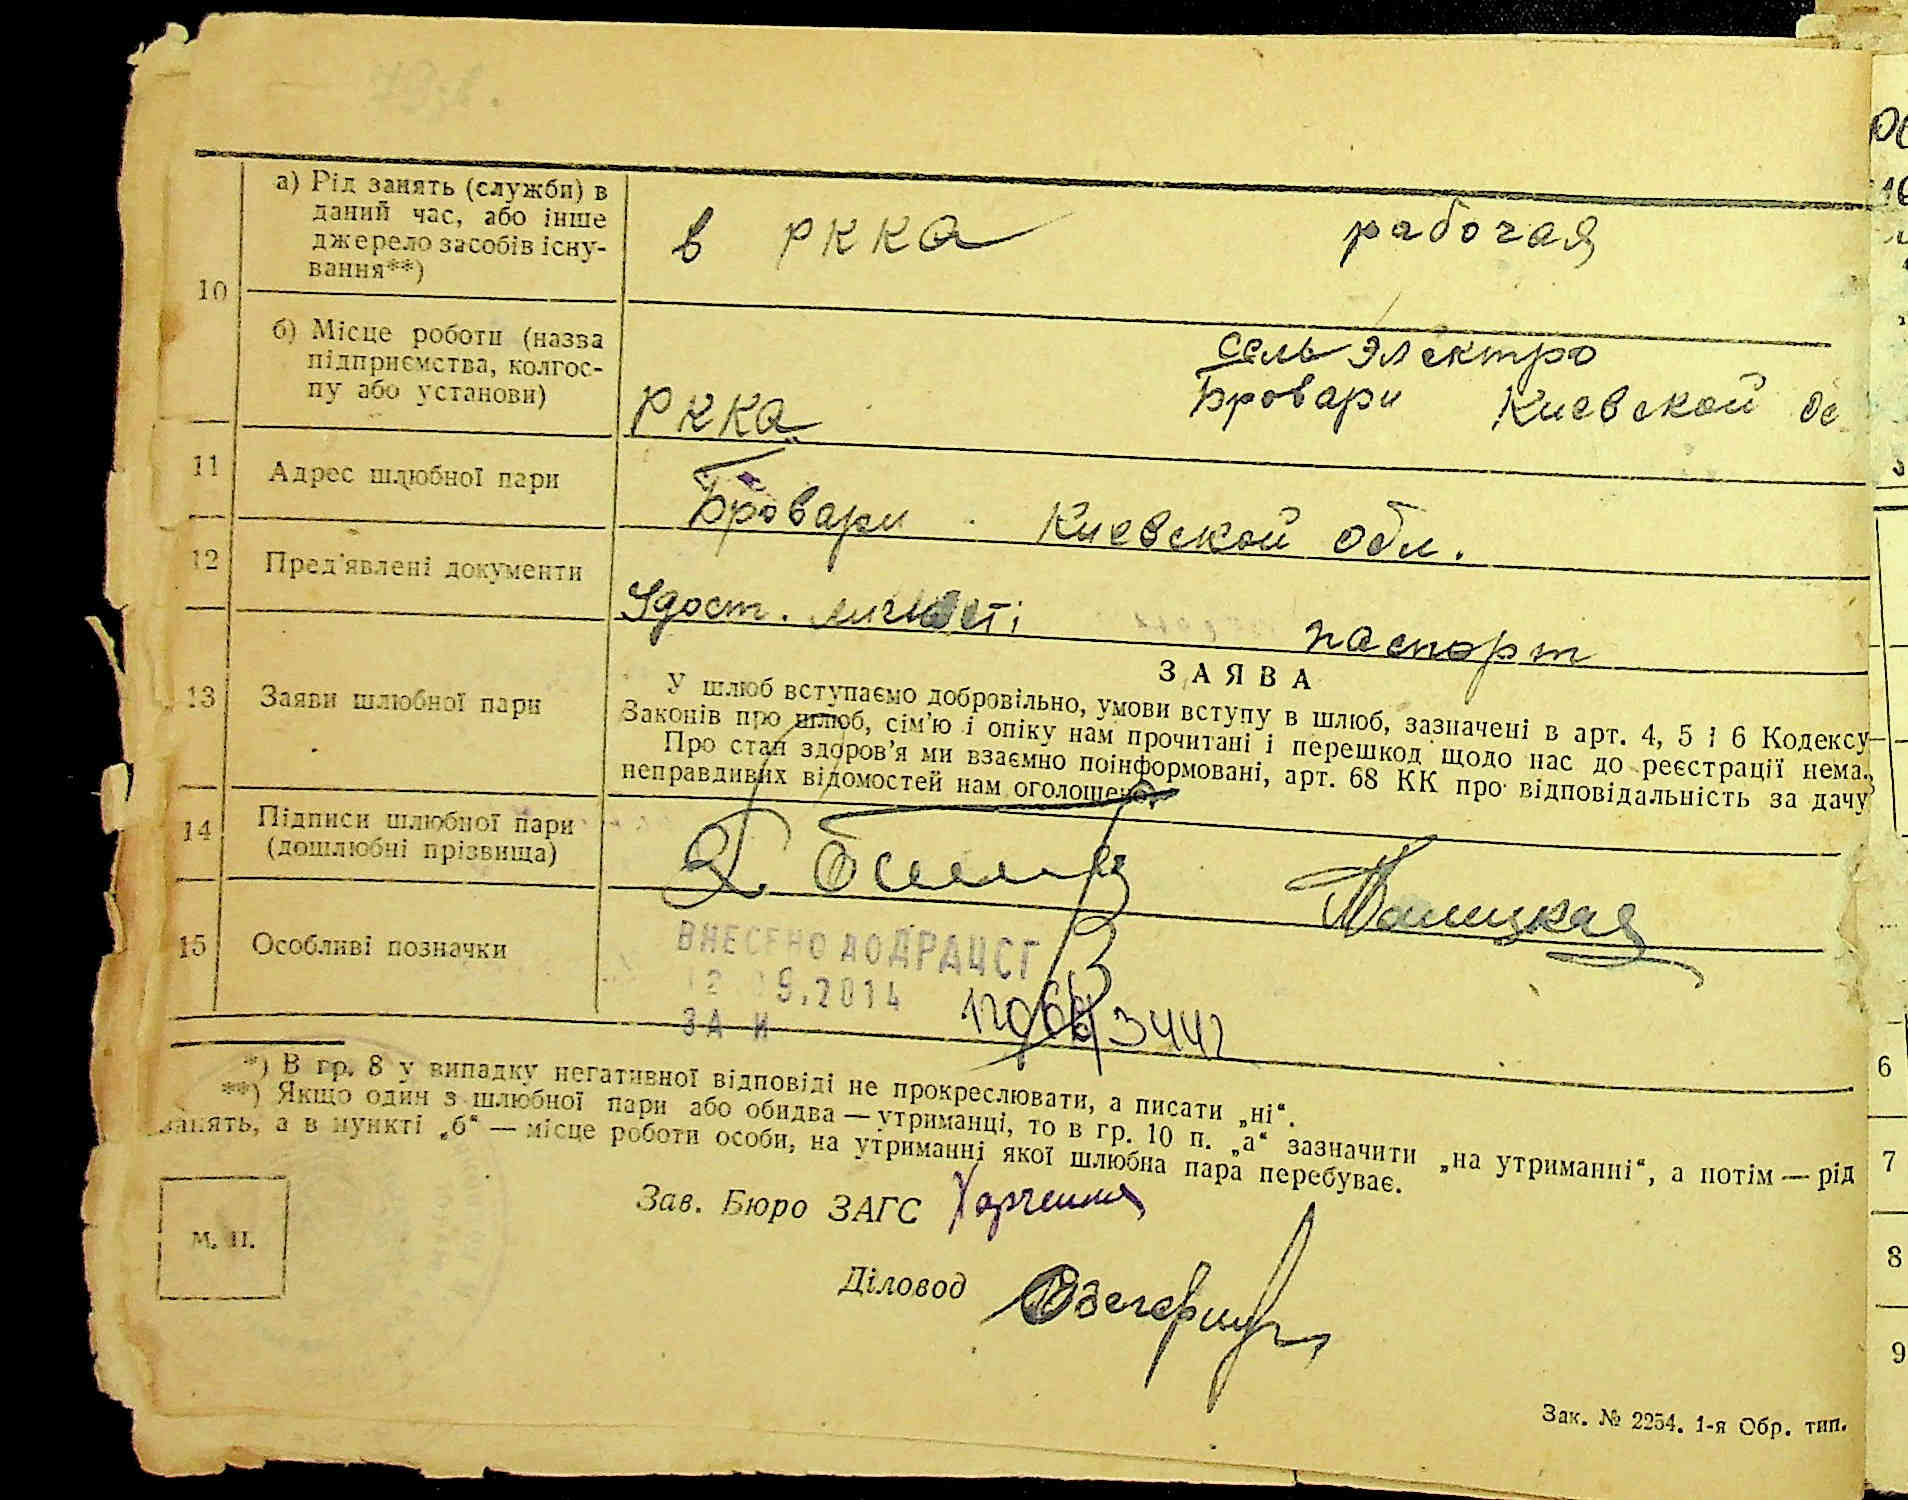 10
а) Рід занять (служби) в
даний час, або інше
джерело засобів існу-
вання**)
в РККА рабочая
б) Місце роботи (назва
підприємства, колгос-
пу або установи)
РККА
Сель Электро
Бровари Киевской
11 Адрес шлюбної пари
Бровари Киевской обл.
12 Пред'явлені документи
Удост. паспорт
13 Заяви шлюбної пари
ЗАЯВА
У шлюб вступаємо добровільно, умови вступу в шлюб, зазначені в арт. 4, 5 і 6 Кодексу
Законів про шлюб, сім'ю і опіку нам прочитані і перешкод щодо нас до реєстрації нема.
Про стан здоров'я ми взаємно поінформовані, арт. 68 КК про відповідальність за дачу
неправдивих відомостей нам оголошено.
14 Підписи шлюбної пари
(дошлюбні прізвища)
15 Особливі позначки
ВНЕСЕНО ДО ДРАЦСГ
9.2014
ЗА
*) В гр. 8 у випадку негативної відповіді не прокреслювати, а писати „ні“.
**) Якщо один з шлюбної пари або обидва — утриманці, то в гр. 10 п. „а“ зазначити „на утриманні“, а потім — рід
занять, а в пункті „б“ — місце роботи особи, на утриманні якої шлюбна пара перебуває.
М. П.
Зав. Бюро ЗАГС
Діловод
Зак. № 2254. 1-я Обр. тип.
6
7
8
9